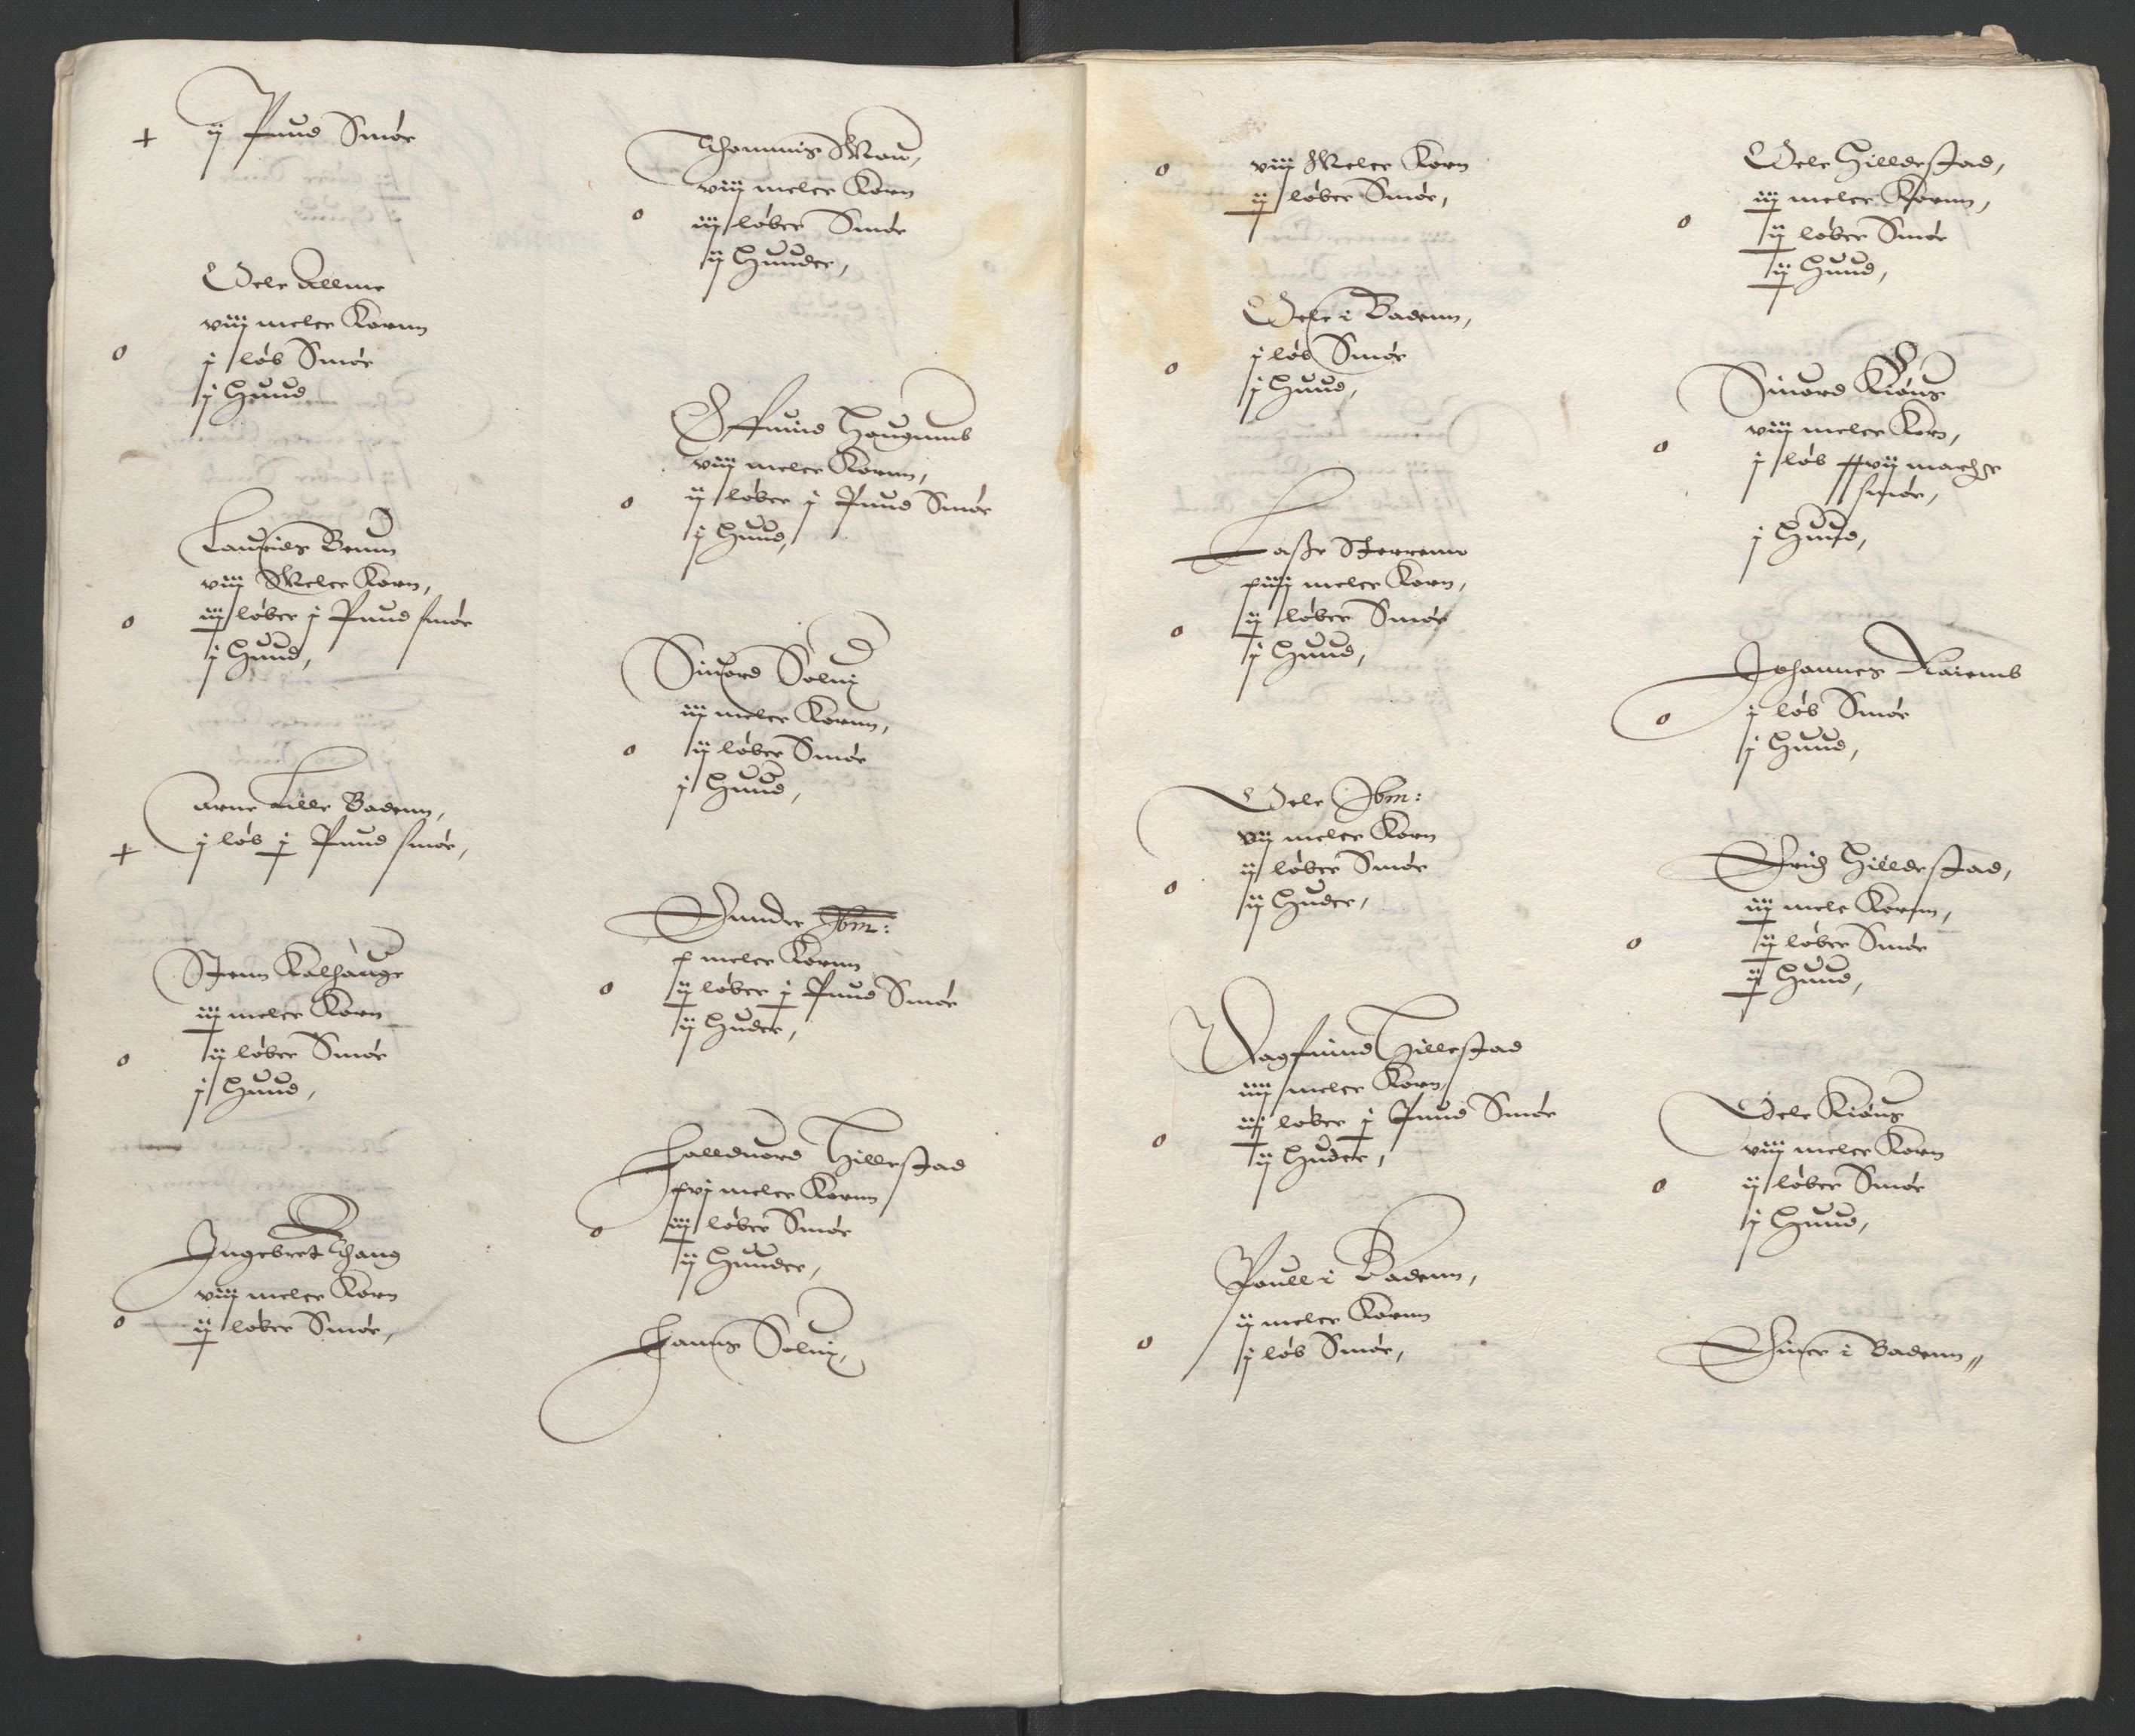 + ij Pund Smør
Oele Allme
viij meler Kornn
o j løb Smør
j Huud
Lauridz Brunn
viij Meler Korn,
o iij løber j Pund smør
j Huud,
Arne Lille Badenn,
+ j løb j Pund smør,
Stenn Kalhauge
iij meler Korn
o ij løber Smør
j Huud,
Ingebret Thang
viij meler Korn
o ij løber Smør,
Thommis Mou,
viij meler Korn
o iij løber Smør
ij Huuder,
Offuind Hougumb
viij meler Kornn,
o ij løber j Pund Smør
j Huud,
Siuord Soluij
iij meler Kornn,
o ij løber Smør
j Huud,
Gunder Ibm:
x meler Kornn
o ij løber j Pund Smør
ij Huder,
Halduord Hillestad
xvj meler Kornn
o iij løber Smør
ij Huuder,
Hanns Soluij,
o viij Meler Korn
ij løber Smør,
Oele i Badenn,
o j løb Smør
j Huud,
Lasse Sterremo
xiiij meler Korn,
o ij løber Smør
j Huud,
Oele Ibm:
vij meler Korn
o ij løber Smør
ij Huder,
Dagfind Hillestad
iiij meler Korn,
o iij løber j Pund Smør
ij Huder,
Poull i Badenn,
ij meler Kornn
o j løb Smør,
Oele Hilldestad,
iij meler Kornn,
o ij løber Smør
ij Huud,
Siuord Kiöng
viij meler Korn,
o j løb xvij marcher
smør,
j Huud,
Johannes Raiemb
o j løb Smør
j Huud,
Erich Hilldestad,
iij mele Kornn,
o ij løber Smør
ij Huud,
Oele Kiöng
viij meler Korn
o ij løber Smør
j Huud,
Einer i Badenn,,